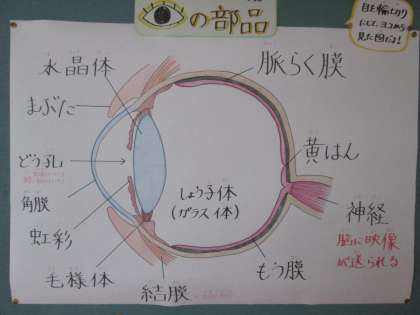 の部品
目を輪切り
にして、ヨコから
見た図だよ!
水晶体
まぶた
どう孔
角膜
虹彩
毛様体
結膜
脈らく膜
黄はん
しょう子体
(ガラス体)
神経
脳に映像
が送られる
もう膜